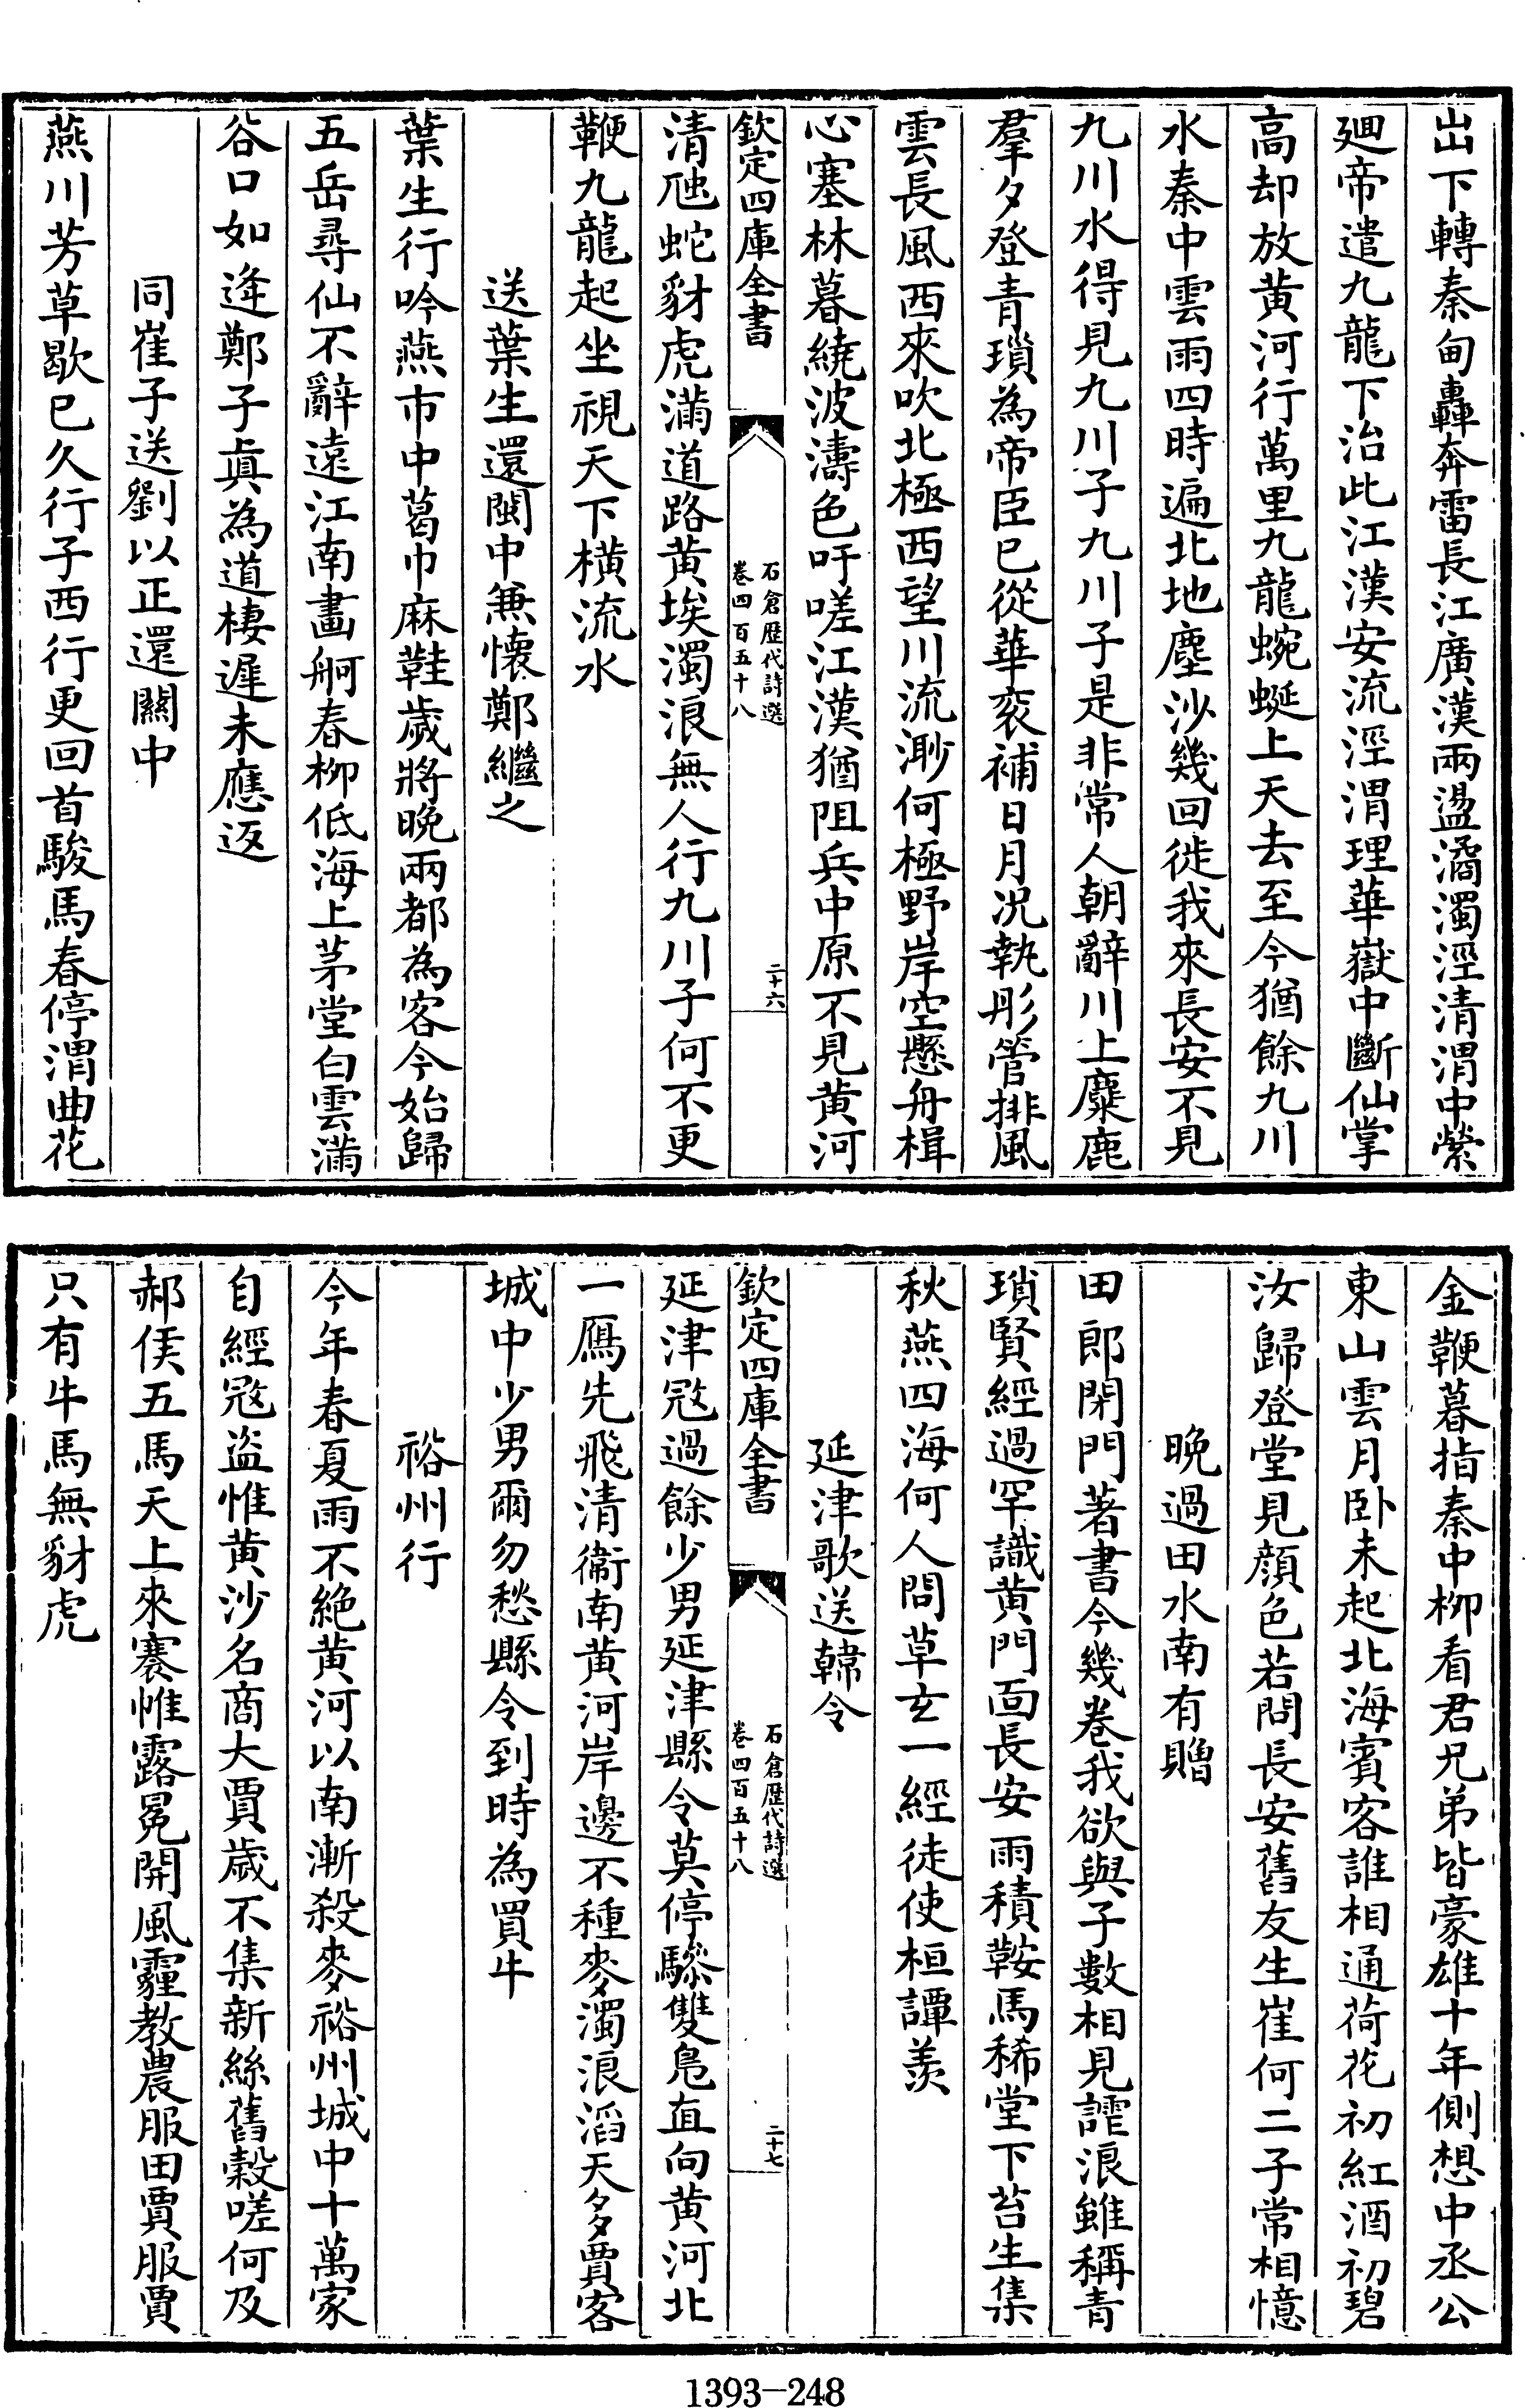 出下轉秦甸轟奔雷長江廣漢兩盪潏濁涇清渭中縈
廻帝遣九龍下治此江漢安流涇渭理華嶽中斷仙掌
高却放黄河行萬里九龍蜿蜒上天去至今猶餘九川
水秦中雲雨四時遍北地塵沙幾回徙我來長安不見
九川水得見九川子九川子是非常人朝辭川上麋鹿
羣夕登青瑣為帝臣已從華衮補日月况執彤管排風
雲長風西來吹北極西望川流渺何極野岸空懸舟楫
心塞林暮繞波濤色吁嗟江漢猶阻兵中原不見黄河
欽定四庫全書
石倉歷代詩選
卷四百五十八
二十六
清虺蛇豺虎滿道路黄埃濁浪無人行九川子何不更
鞭九龍起坐視天下橫流水
送葉生還閩中兼懷鄭繼之
葉生行吟燕市中葛巾麻鞋歲將晩兩都為客今始歸
五岳尋仙不辭遠江南畫舸春柳低海上茅堂白雲滿
谷口如逢鄭子真為道棲遲未應返
同崔子送劉以正還關中
燕川芳草歇已久行子西行更回首駿馬春停渭曲花
金鞭暮指秦中柳看君兄弟皆豪雄十年側想中丞公
東山雲月卧未起北海賓客誰相通荷花初紅酒初碧
汝歸登堂見顔色若問長安舊友生崔何二子常相憶
晩過田水南有贈
田郎閉門著書今幾卷我欲與子數相見謔浪雖稱青
瑣賢經過罕識黄門面長安雨積鞍馬稀堂下苔生集
秋燕四海何人問草玄一經徒使桓譚羨
延津歌送韓令
欽定四庫全書
石倉歷代詩選
卷四百五十八
二十七
延津冦過餘少男延津縣令莫停驂雙鳬直向黄河北
一鴈先飛清衞南黄河岸邊不種麥濁浪滔天多賈客
城中少男爾勿愁縣令到時為買牛
裕州行
今年春夏雨不絶黄河以南漸殺麥裕州城中十萬家
自經冦盜惟黄沙名商大賈歲不集新絲舊穀嗟何及
郝侯五馬天上來褰帷露冕開風霾教農服田賈服賈
只有牛馬無豺虎
1393—248